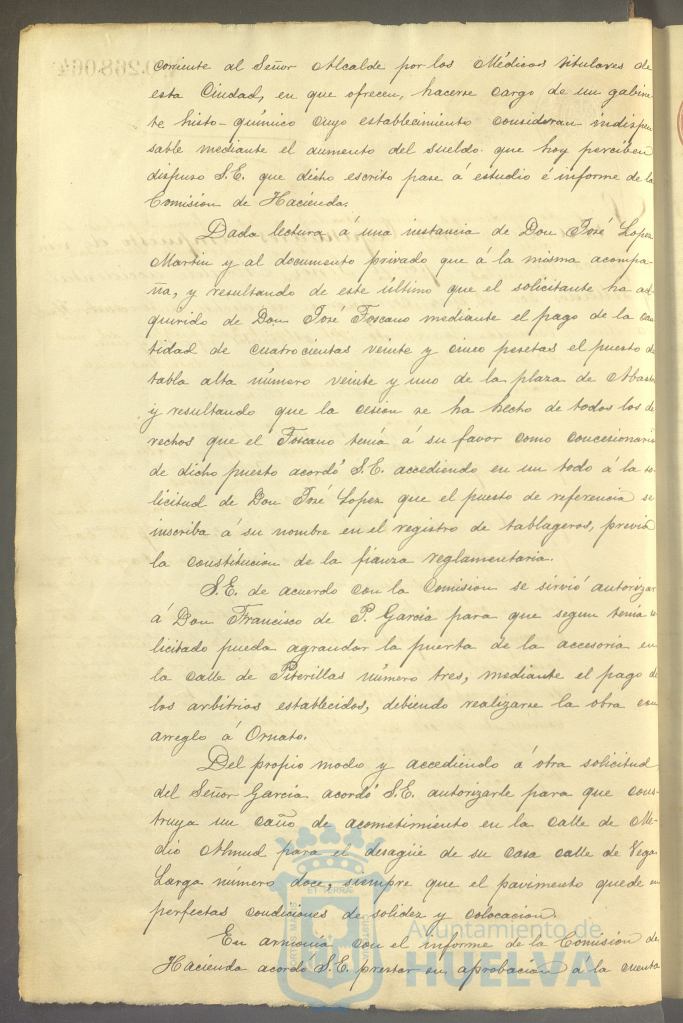 corriente al Señor Alcalde por los Médicos titulares de
esta Ciudad, en que ofrecen, hacerse cargo de un gabine
te histo-químico cuyo establecimiento consideran indispen
sable mediante el aumento del sueldo que hoy perciben
dispuso S.E. que dicho escrito pase á estudio é informe de la
Comision de Hacienda.
Dada lectura á una instancia de Don José Lopez
Martin y al documento privado que á la misma acompa
ña, y resultando de este último que el solicitante ha ad
quirido de Don José Toscano mediante el pago de la can
tidad de cuatrocientas veinte y cinco pesetas el puesto de
tabla alta número veinte y uno de la plaza de Abasto
y resultando que la cesion se ha hecho de todos los de
rechos que el Toscano tenía á su favor como concesionario
de dicho puesto acordó S.E. accediendo en un todo á la so
licitud de Don José Lopez que el puesto de referencia se
inscriba á su nombre en el registro de tablageros, previa
la constitucion de la fianza reglamentaria.
S.E. de acuerdo con la Comision se sirvió autorizar
á Don Francisco de P. García para que segun tenía so
licitado pueda agrandar la puerta de la accesoria en
la calle de número tres, mediante el pago de
los arbitrios establecidos, debiendo realizarse la obra con
arreglo á Ornato.
Del propio modo y accediendo á otra solicitud
del Señor García acordó S.E. autorizarle para que cons
truya un caño de acometimiento en la calle de Me-
dio Almud para el desagüe de su casa calle de Vega
Larga número doce, siempre que el pavimento quede en
perfectas condiciones de solidez y colocacion.
En armonía con el informe de la Comision de
Hacienda acordó S.E. prestar su aprobacion á la cuenta
Ayuntamiento de
HUELVA